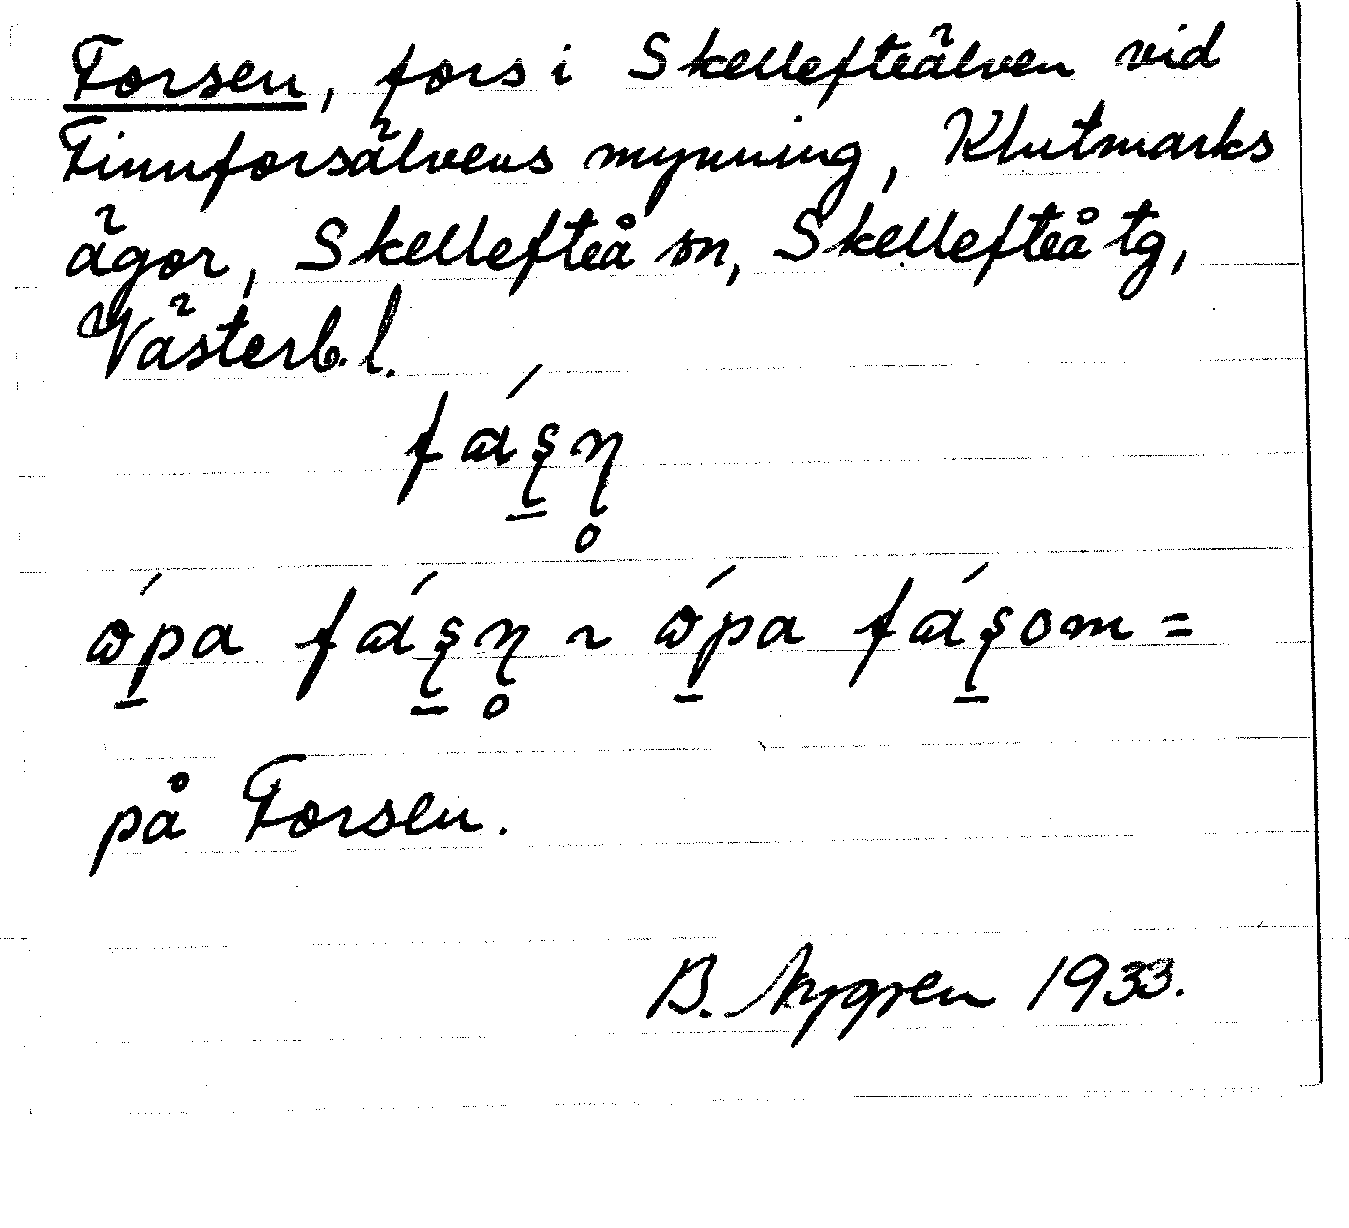 Forsen, fors i Skellefteälven vid
Finnforsälvens mynning, Klutmarks
ägor, Skellefteå sn, Skellefteå tg,
Västerb. l.
på Forsen.
B. Nygren 1933.